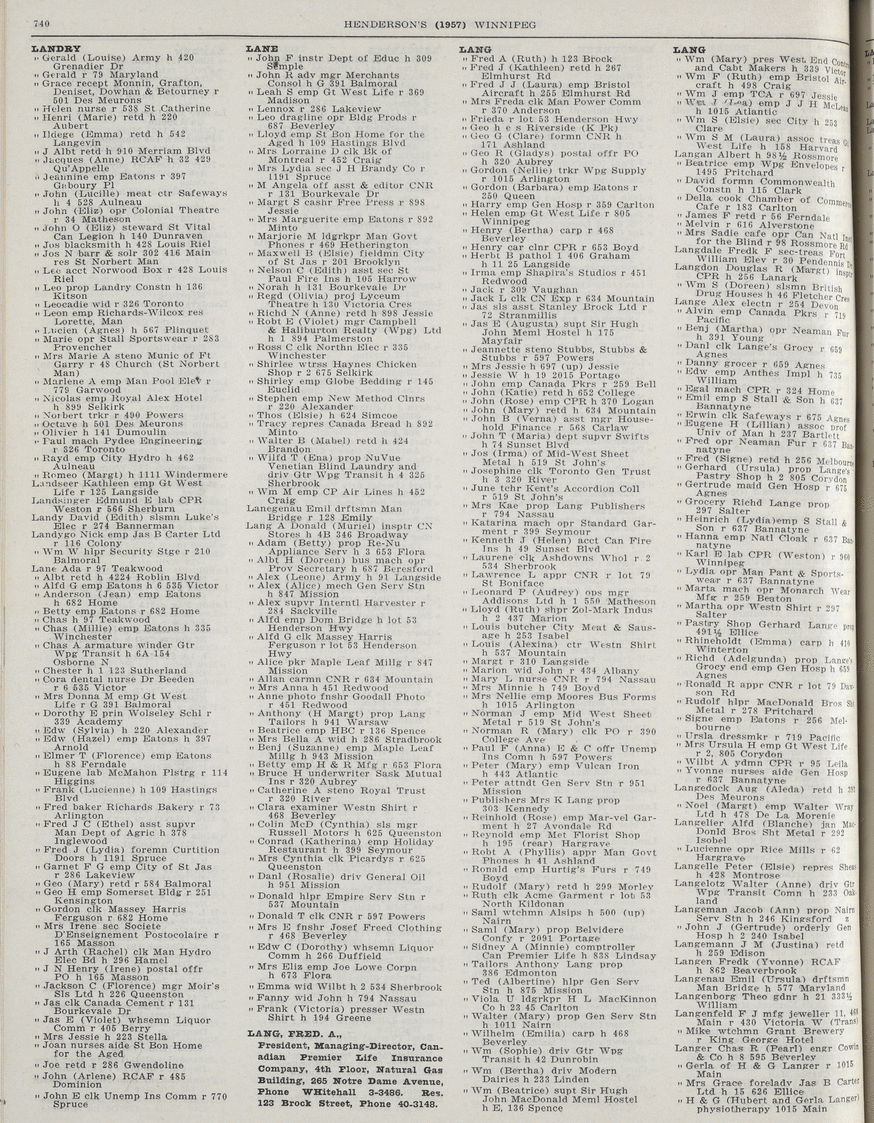 740
HENDERSON'S (1957) WINNIPEG
LANDRY
" Gerald (Louise) Army h 420
Grenadier Dr
" Gerald r 79 Maryland
" Grace recept Monnin, Grafton,
Deniset, Dowhan & Betourney r
501 Des Meurons
" Helen nurse r 538 St Catherine
" Henri (Marie) retd h 220
Aubert
" Ildege (Emma) retd h 542
Langevin
" J Albt retd h 910 Merriam Blvd
" Jacques (Anne) RCAF h 32 429
Qu'Appelle
" Jeannine emp Eatons r 397
Gaboury Pl
" John (Lucille) meat ctr Safeways
h 4 528 Aulneau
" John (Eliz) opr Colonial Theatre
r 34 Matheson
" John O (Eliz) steward St Vital
Can Legion h 140 Dunraven
" Jos blacksmith h 428 Louis Riel
" Jos N barr & solr 302 416 Main
res St Norbert Man
" Leo acct Norwood Box r 428 Louis
Riel
" Leo prop Landry Constn h 136
Kitson
" Leocadie wid r 326 Toronto
" Leon emp Richards-Wilcox res
Lorette, Man
" Lucien (Agnes) h 567 Plinquet
" Marie opr Stall Sportswear r 283
Provencher
" Mrs Marie A steno Munic of Ft
Garry r 48 Church (St Norbert
Man)
" Marlene A emp Man Pool Elev r
779 Garwood
" Nicolas emp Royal Alex Hotel
h 899 Selkirk
" Norbert trkr r 490 Powers
" Octave h 501 Des Meurons
" Olivier h 141 Dumoulin
" Paul mach Pydee Engineering
r 326 Toronto
" Rayd emp City Hydro h 462
Aulneau
" Romeo (Margt) h 1111 Windermere
Landseer Kathleen emp Gt West
Life r 125 Langside
Landsinger Edmund E lab CPR
Weston r 566 Sherburn
Landy David (Edith) slsmn Luke's
Elec r 274 Bannerman
Landygo Nick emp Jas B Carter Ltd
r 116 Colony
" Wm W hlpr Security Stge r 210
Balmoral
Lane Ada r 97 Teakwood
" Albt retd h 4224 Roblin Blvd
" Alfd G emp Eatons h 6 535 Victor
" Anderson (Jean) emp Eatons
h 682 Home
" Betty emp Eatons r 682 Home
" Chas h 97 Teakwood
" Chas (Millie) emp Eatons h 335
Winchester
" Chas A armature winder Gtr
Wpg Transit h 6A 154
Osborne N
" Chester h 1 123 Sutherland
" Cora dental nurse Dr Beeden
r 6 535 Victor
" Mrs Donna M emp Gt West
Life r G 391 Balmoral
" Dorothy E prin Wolseley Schl r
339 Academy
" Edw (Sylvia) h 220 Alexander
" Edw (Hazel) emp Eatons h 397
Arnold
" Elmer T (Florence) emp Eatons
h 88 Ferndale
" Eugene lab McMahon Plstrg r 114
Higgins
" Frank (Lucienne) h 109 Hastings
Blvd
" Fred baker Richards Bakery r 73
Arlington
" Fred J C (Ethel) asst supvr
Man Dept of Agric h 378
Inglewood
" Fred J (Lydia) foremn Curtition
Doors h 1191 Spruce
" Garnet F G emp City of St Jas
r 286 Lakeview
" Geo (Mary) retd r 584 Balmoral
" Geo H emp Somerset Bldg r 251
Kensington
" Gordon clk Massey Harris
Ferguson r 682 Home
" Mrs Irene sec Societe
D'Enseignement Postocolaire r
165 Masson
" J Arth (Rachel) clk Man Hydro
Elec Bd h 296 Hamel
" J N Henry (Irene) postal offr
PO h 165 Masson
" Jackson C (Florence) mgr Moir's
Sls Ltd h 226 Queenston
" Jas clk Canada Cement r 131
Bourkevale Dr
" Jas E (Violet) whsemn Liquor
Comm r 405 Berry
" Mrs Jessie h 223 Stella
" Joan nurses aide St Bon Home
for the Aged
" Joe retd r 286 Gwendoline
" John (Arlene) RCAF r 485
Dominion
" John E clk Unemp Ins Comm r 770
Spruce
LANE
" John F instr Dept of Educ h 309
Semple
" John R adv mgr Merchants
Consol h G 391 Balmoral
" Leah S emp Gt West Life r 369
Madison
" Lennox r 286 Lakeview
" Leo dragline opr Bldg Prods r
687 Beverley
" Lloyd emp St Bon Home for the
Aged h 109 Hastings Blvd
" Mrs Lorraine D clk Bk of
Montreal r 452 Craig
" Mrs Lydia sec J H Brandy Co r
1191 Spruce
" M Angela off asst & editor CNR
r 131 Bourkevale Dr
" Margt S cashr Free Press r 898
Jessie
" Mrs Marguerite emp Eatons r 892
Minto
" Marjorie M ldgrkpr Man Govt
Phones r 469 Hetherington
" Maxwell B (Elsie) fieldmn City
of St Jas r 201 Brooklyn
" Nelson C (Edith) asst sec St
Paul Fire Ins h 105 Harrow
" Norah h 131 Bourkevale Dr
" Regd (Olivia) proj Lyceum
Theatre h 130 Victoria Cres
" Richd N (Anne) retd h 898 Jessie
" Robt E (Violet) mgr Campbell
& Haliburton Realty (Wpg) Ltd
h 1 894 Palmerston
" Ross C clk Northn Elec r 335
Winchester
" Shirlee wtrss Haynes Chicken
Shop r 2 675 Selkirk
" Shirley emp Globe Bedding r 145
Euclid
" Stephen emp New Method Clnrs
r 220 Alexander
" Thos (Elsie) h 624 Simcoe
" Tracy repres Canada Bread h 892
Minto
" Walter B (Mabel) retd h 424
Brandon
" Wilfd T (Ena) prop NuVue
Venetian Blind Laundry and
driv Gtr Wpg Transit h 4 325
Sherbrook
" Wm M emp CP Air Lines h 452
Craig
Lanegenau Emil drftsmn Man
Bridge r 128 Emily
Lang A Donald (Muriel) insptr CN
Stores h 4B 346 Broadway
" Adam (Betty) prop Re-Nu
Appliance Serv h 3 653 Flora
" Albt H (Doreen) bus mach opr
Prov Secretary h 687 Beresford
" Alex (Leone) Army h 91 Langside
" Alex (Alice) mech Gen Serv Stn
h 847 Mission
" Alex supvr Interntl Harvester r
284 Sackville
" Alfd emp Dom Bridge h lot 53
Henderson Hwy
" Alfd G clk Massey Harris
Ferguson r lot 53 Henderson
Hwy
" Alice pkr Maple Leaf Millg r 847
Mission
" Allan carmn CNR r 634 Mountain
" Mrs Anna h 451 Redwood
" Anne photo fnshr Goodall Photo
r 451 Redwood
" Anthony (H Margt) prop Lang
Tailors h 941 Warsaw
" Beatrice emp HBC r 136 Spence
" Mrs Bella A wid h 286 Stradbrook
" Benj (Suzanne) emp Maple Leaf
Millg h 943 Mission
" Betty emp H & R Mfg r 653 Flora
" Bruce H underwriter Sask Mutual
Ins r 320 Aubrey
" Catherine A steno Royal Trust
r 320 River
" Clara examiner Westn Shirt r
468 Beverley
" Colin McD (Cynthia) sls mgr
Russell Motors h 625 Queenston
" Conrad (Katherina) emp Holiday
Restaurant h 399 Seymour
" Mrs Cynthia clk Picardys r 625
Queenston
" Danl (Rosalie) driv General Oil
h 951 Mission
" Donald hlpr Empire Serv Stn r
537 Mountain
" Donald T clk CNR r 597 Powers
" Mrs E fnshr Josef Freed Clothing
r 468 Beverley
" Edw C (Dorothy) whsemn Liquor
Comm h 266 Duffield
" Mrs Eliz emp Joe Lowe Corpn
h 673 Flora
" Emma wid Wilbt h 2 534 Sherbrook
" Fanny wid John h 794 Nassau
" Frank (Victoria) presser Westn
Shirt h 194 Greene
LANG, FRED. A.,
President, Managing-Director, Can-
adian Premier Life Insurance
Company, 4th Floor, Natural Gas
Building, 265 Notre Dame Avenue,
Phone WHitehall 3-3486. Res.
123 Brock Street, Phone 40-3148.
LANG
" Fred A (Ruth) h 123 Brock
" Fred J (Kathleen) retd h 267
Elmhurst Rd
" Fred J J (Laura) emp Bristol
Aircraft h 255 Elmhurst Rd
" Mrs Freda clk Man Power Comm
r 370 Anderson
" Frieda r lot 53 Henderson Hwy
" Geo h e s Riverside (K Pk)
" Geo G (Clare) formn CNR h
171 Ashland
" Geo R (Gladys) postal offr PO
h 320 Aubrey
" Gordon (Nellie) trkr Wpg Supply
r 1015 Arlington
" Gordon (Barbara) emp Eatons r
250 Queen
" Harry emp Gen Hosp r 359 Carlton
" Helen emp Gt West Life r 805
Winnipeg
" Henry (Bertha) carp r 468
Beverley
" Henry car clnr CPR r 653 Boyd
" Herbt B pathol 1 406 Graham
h 11 25 Langside
" Irma emp Shapira's Studios r 451
Redwood
" Jack r 309 Vaughan
" Jack L clk CN Exp r 634 Mountain
" Jas sls asst Stanley Brock Ltd r
72 Stranmillis
" Jas E (Augusta) supt Sir Hugh
John Meml Hostel h 175
Mayfair
" Jeannette steno Stubbs, Stubbs &
Stubbs r 597 Powers
" Mrs Jessie h 697 (up) Jessie
" Jessie W h 19 2015 Portage
" John emp Canada Pkrs r 259 Bell
" John (Katie) retd h 652 College
" John (Rose) emp CPR h 370 Logan
" John (Mary) retd h 634 Mountain
" John B (Verna) asst mgr House-
hold Finance r 568 Carlaw
" John T (Maria) dept supvr Swifts
h 74 Sunset Blvd
" Jos (Irma) of Mid-West Sheet
Metal h 519 St John's
" Josephine clk Toronto Gen Trust
h 3 320 River
" June tchr Kent's Accordion Coll
r 519 St John's
" Mrs Kae prop Lang Publishers
r 794 Nassau
" Katarina mach opr Standard Gar-
ment r 399 Seymour
" Kenneth J (Helen) acct Can Fire
Ins h 49 Sunset Blvd
" Laurene clk Ashdowns Whol r 2
534 Sherbrook
" Lawrence L appr CNR r lot 79
St Boniface
" Leonard P (Audrey) ops mgr
Addisons Ltd h 1 550 Matheson
" Lloyd (Ruth) shpr Zol-Mark Indus
h 2 437 Marion
" Louis butcher City Meat & Saus-
age h 253 Isabel
" Louis (Alexina) ctr Westn Shirt
h 537 Mountain
" Margt r 310 Langside
" Marion wid John r 434 Albany
" Mary L nurse CNR r 794 Nassau
" Mrs Minnie h 749 Boyd
" Mrs Nellie emp Moores Bus Forms
h 1015 Arlington
" Norman J emp Mid West Sheet
Metal r 519 St John's
" Norman R (Mary) clk PO r 390
College Ave
" Paul F (Anna) E & C offr Unemp
Ins Comn h 597 Powers
" Peter (Mary) emp Vulcan Iron
h 443 Atlantic
" Peter attndt Gen Serv Stn r 951
Mission
" Publishers Mrs K Lang prop
303 Kennedy
" Reinhold (Rose) emp Mar-vel Gar-
ment h 27 Avondale Rd
" Reynold emp Met Florist Shop
h 195 (rear) Hargrave
" Robt A (Phyllis) appr Man Govt
Phones h 41 Ashland
" Ronald emp Hurtig's Furs r 749
Boyd
" Rudolf (Mary) retd h 299 Morley
" Ruth clk Acme Garment r lot 53
North Kildonan
" Saml wtchmn Alsips h 500 (up)
Nairn
" Saml (Mary) prop Belvidere
Confy r 2091 Portage
" Sidney A (Minnie) comptroller
Can Premier Life h 838 Lindsay
" Tailors Anthony Lang prop
386 Edmonton
" Ted (Albertine) hlpr Gen Serv
Stn h 875 Mission
" Viola U ldgrkpr H L MacKinnon
Co h 23 45 Carlton
" Walter (Mary) prop Gen Serv Stn
h 1011 Nairn
" Wilhelm (Emilia) carp h 468
Beverley
" Wm (Sophie) driv Gtr Wpg
Transit h 42 Dunrobin
" Wm (Bertha) driv Modern
Dairies h 233 Linden
" Wm (Beatrice) supt Sir Hugh
John MacDonald Meml Hostel
h E, 136 Spence
LANG
" Wm (Mary) pres West End
and Cabt Makers h 339 Victor
" Wm F (Ruth) emp Bristol Air-
craft h 498 Craig
" Wm J emp TCA r 697 Jessie
" J emp J J H McLean
h 1015 Atlantic
" Wm S (Elsie) sec City h 253
Clare
" Wm S M (Laura) assoc treas
West Life h 158 Harvard
Langan Albert h 98½ Rossmore
" Beatrice emp Wpg Envelopes r
1495 Pritchard
" David formn Commonwealth
Constn h 115 Clark
" Della cook Chamber of Commerce
Cafe r 183 Carlton
" James F retd r 56 Ferndale
" Melvin r 616 Alverstone
" Mrs Sadie cafe opr Can Natl
for the Blind r 98 Rossmore Rd
Langdale Fredk F sec-treas Fort
William Elev r 30 Pendennis
Langdon Douglas R (Margt)
CPR h 256 Lanark
" Wm S (Doreen) slsmn British
Drug Houses h 46 Fletcher Cres
Lange Alex electn r 254 Devon
" Alvin emp Canada Pkrs r 719
Pacific
" Benj (Martha) opr Neaman Fur
h 391 Young
" Danl clk Lange's Grocy r 659
Agnes
" Danny grocer r 659 Agnes
" Edw emp Anthes Impl h 735
William
" Egal mach CPR r 324 Home
" Emil emp S Stall & Son h 637
Bannatyne
" Erwin clk Safeways r 675 Agnes
" Eugene H (Lillian) assoc prof
Univ of Man h 237 Bartlett
" Fred opr Neaman Fur r 637 Ban-
natyne
" Fred (Signe) retd h 256 Melbourne
" Gerhard (Ursula) prop Lange's
Pastry Shop h 2 805 Corydon
" Gertrude maid Gen Hosp r 675
Agnes
" Grocery Richd Lange prop
297 Salter
" Heinrich (Lydia) emp S Stall &
Son r 637 Bannatyne
" Hanna emp Natl Cloak r 637 Ban-
natyne
" Karl E lab CPR (Weston) r
Winnipeg
" Lydia opr Man Pant & Sports-
wear r 637 Bannatyne
" Marta mach opr Monarch Wear
Mfg r 259 Beaton
" Martha opr Westn Shirt r 297
Salter
" Pastry Shop Gerhard Lange prop
491½ Ellice
" Rhineholdt (Emma) carp h 410
Winterton
" Richd (Adelgunda) prop Lange's
Grocy end emp Gen Hosp h 659
Agnes
" Ronald R appr CNR r lot 79 Daw-
son Rd
" Rudolf hlpr MacDonald Bros Sht
Metal r 278 Pritchard
" Signe emp Eatons r 256 Mel-
bourne
" Ursla dressmkr r 719 Pacific
" Mrs Ursula H emp Gt West Life
r 2, 805 Corydon
" Wilbt A ydmn CPR r 95 Leila
" Yvonne nurses aide Gen Hosp
r 637 Bannatyne
Langedock Aug (Aleda) retd h
Des Meurons
" Noel (Margt) emp Walter Wray
Ltd h 478 De La Morenie
Langelier Alfd (Blanche) jan Mac-
Donld Bros Sht Metal r 292
Isobel
" Lucienne opr Rice Mills r 62
Hargrave
Langelle Peter (Elsie) repres Shea's
h 428 Montrose
Langelotz Walter (Anne) driv Gtr
Wpg Transit Comn h 233 Oak-
land
Langeman Jacob (Ann) prop Nairn
Serv Stn h 246 Kingsford
" John J (Gertrude) orderly Gen
Hosp h 2 240 Isabel
Langemann J M (Justina) retd
h 259 Edison
Langen Fredk (Yvonne) RCAF
h 862 Beaverbrook
Langenau Emil (Ursula) drftsmn
Man Bridge h 577 Maryland
Langenborg Theo gdnr h 21 333½
William
Langenfeld F J mfg jeweller 11,
Main r 430 Victoria W (Trans)
" Mike wtchmn Grant Brewery
r King George Hotel
Langer Chas R (Pearl) engr Cowin
& Co h 8 595 Beverley
" Gerla of H & G Langer r 1015
Main
" Mrs Grace forelady Jas B Carter
Ltd h 15 626 Ellice
" H & G (Hubert and Gerla Langer)
physiotherapy 1015 Main